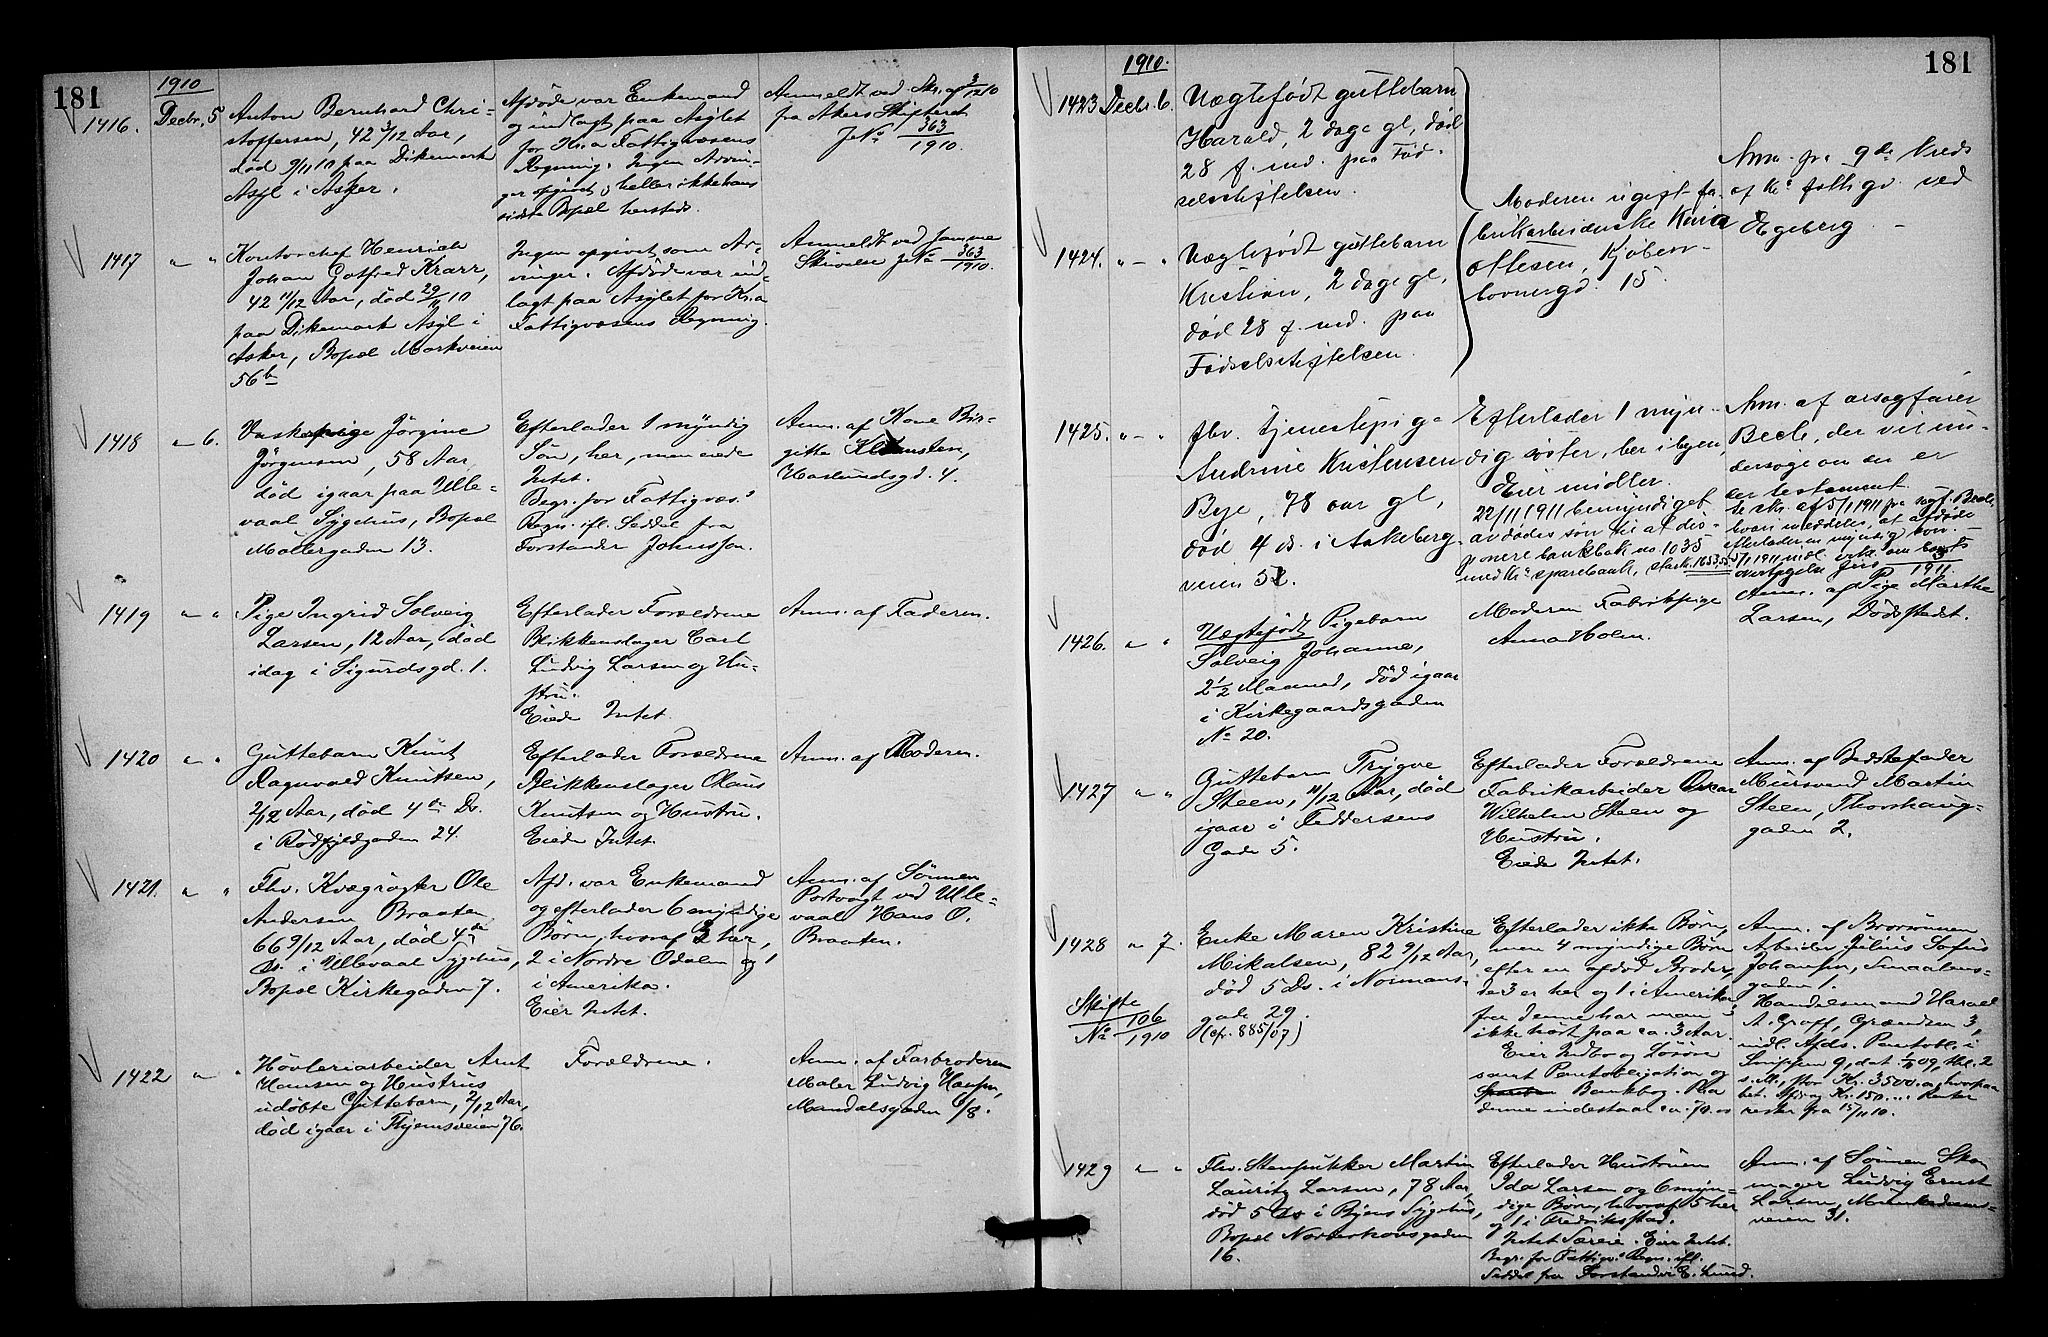 181
1910
1416. Decbr. 5
Anton Bernhard Chri-
stoffersen, 42 3/12 Aar,
død 9/11 10 paa Dikemark
Asyl i Asker.
Afdøde var Enkemand
og indlagt paa Asylet
for Kr.a Fattigvæsens
Regning. Ingen Arvin-
ger opgivet, heller ikke hans
sidste Bopæl hersteds.
Anmeldt ved Skr. af 3/12 10
fra Akers Skifteret
J No 363/1910.
1417 " "
Kontorchef Henrich
Johan Gotfred Krarr,
42 11/12 Aar, død 29/11 10
paa Dikemark Asyl i
Asker, Bopæl Markveien
56b
Ingen opgivet som Ar-
vinger. Afdøde var ind-
lagt paa Asylet for Kr.a
Fattigvæsens Regning.
Anmeldt ved samme
Skrivelse J No 363/1910.
1418 " 6.
Vaskepige Jørgine
Jørgensen, 58 Aar,
død igaar paa Ulle-
vaal Sygehus, Bopæl
Møllergaden 13.
Efterlader 1 myndig
Søn, her, men eiede
Intet.
Begr. for Fattigvæs.s
Regn. ifl. Seddel fra
Forstander Johnssen.
Anm. af Kone Bir-
gitte
Haslundsgd. 4.
1419 " "
Pige Ingrid Solveig
Larsen, 12 Aar, død
idag i Sigurdsgd. 1.
Efterlader Forældrene
Blikkenslager Carl
Ludvig Larsen og Hu-
stru.
Eiede Intet.
Anm. af Faderen.
1420 " "
Guttebarn Knut
Ragnvald Knutsen,
2/12 Aar, død 4de Ds.
i Rødfyldgaden 24.
Efterlader Forældrene
Blikkenslager Olaus
Knutsen og Hustru.
Eiede Intet.
Anm. af Moderen.
1421. " "
Fhv. Kvægrøgter Ole
Andersen Braaten,
66 9/12 Aar, død 4de
Ds. i Ullevaal Sygehus,
Bopæl Kirkegaden 7.
Afd. var Enkemand
og efterlader 6 myndige
Børn, hvoraf 3 her,
2 i Nordre Odalen og 1
i Amerika.
Eier Intet.
Anm. af Sønnen
Portvagt ved Ulle-
vaal Hans O.
Braaten.
1422 " "
Høvleriarbeider Arnt
Hansen og Hustrus
udøbte Guttebarn, 2/12 Aar,
død igaar i Thjemsveien 76.
Forældrene.
Anm. af Farbroderen
Maler Ludvig Hansen,
Mandalsgaden 6/8.
181
1910.
1423 Decbr. 6.
Uægtefødt guttebarn
Harald, 2 dage gl, død
28 f. md. paa Fød-
selsstiftelsen.
1424. " — "
Uægtefødt guttebarn
Kristian, 2 dage gl,
død 28 f. md. paa
Fødselsstiftelsen.
Moderen ugift fa-
brikarbeiderske Kaia
Ottesen, Kjøben-
havnergd. 15.
Anm. fra 9de Kreds
af Kra fattigv. ved
Egeberg.
1425. " — "
fhv. tjenestepige
Andrine Kristensen
Bye, 78 aar gl,
død 4 ds. i Aakeberg-
veien 52.
Efterlader 1 myn-
dig søster, her i byen,
Eier midler.
22/11 1911 bemyndiget
avdødes søn til at dis-
ponere bankbok no 1035
med Kra sparebank, stor kr. 1653.55
Anm. af orsagfører
Bech, der vil un-
dersøge om der er
der testament.
5/1 1911 fra sagf. Bech,
hvori meddeles, at afdøde
efterlader en myndig søn.
1426. " "
Uægtefødt Pigebarn
Solveig Johanne,
2 1/2 Maaned, død igaar
i Kirkegaardsgaden
No 20.
Moderen Fabrikpige
Anna Holm.
Anm. af Pige Marthe
Larsen, Dødsstedet.
1427 " "
Guttebarn Trygve
Steen, 11/12 Aar, død
igaar i Feddersens
Gade 5.
Efterlader Forældrene
Fabrikarbeider Oskar
Wilhelm Steen og
Hustru.
Eiede Intet.
Anm. af Bedstefader
Muursvend Martin
Steen, Thorshaug-
gaden 2.
1428 " 7.
Skifte
No 106/1910
Enke Maren Kristine
Mikalsen, 82 9/12 Aar,
død 5 Ds. i Normans-
gade 29.
(cfr. 885/07)
Efterlader ikke Børn,
men 4 myndige Børn
efter en afdød Broder,
de 3 er her og 1 i Amerika,
fra denne har man
ikke hørt paa ca. 3 Aar.
Eier Indbo og Løsøre
samt Pantobligation og
Bankbog. Paa
denne indestaar ca.
Anm. af Brorsønnen
Arbeider Julius Sofus
Johansen, Smaalens-
gaden 1.
Handelsmand Harald
A. Graff, Grændsen 3,
indl. Afds. Pantobl. i
s. M., stor Kr. 3500.00, hvorpaa
bet. Kr. 150.... Renter
rester fra 15/11 10.
1429 " "
Fhv. Stenpukker Martin
Lauritz Larsen, 78 Aar,
død 5 Ds i Byens Sygehus,
Bopæl Norderhovsgaden
16.
Efterlader Hustruen
Ida Larsen og 6 myn-
dige Børn, hvoraf 5 her
og 1 i Fredriksstad.
Intet Særeie. Eier Intet.
Begr. for Fattigv.s Regn. ifl.
Seddel fra Forstander E. Lund.
Anm. af Sønnen Sko-
mager Ludvig Ernst
Larsen,
veien 31.